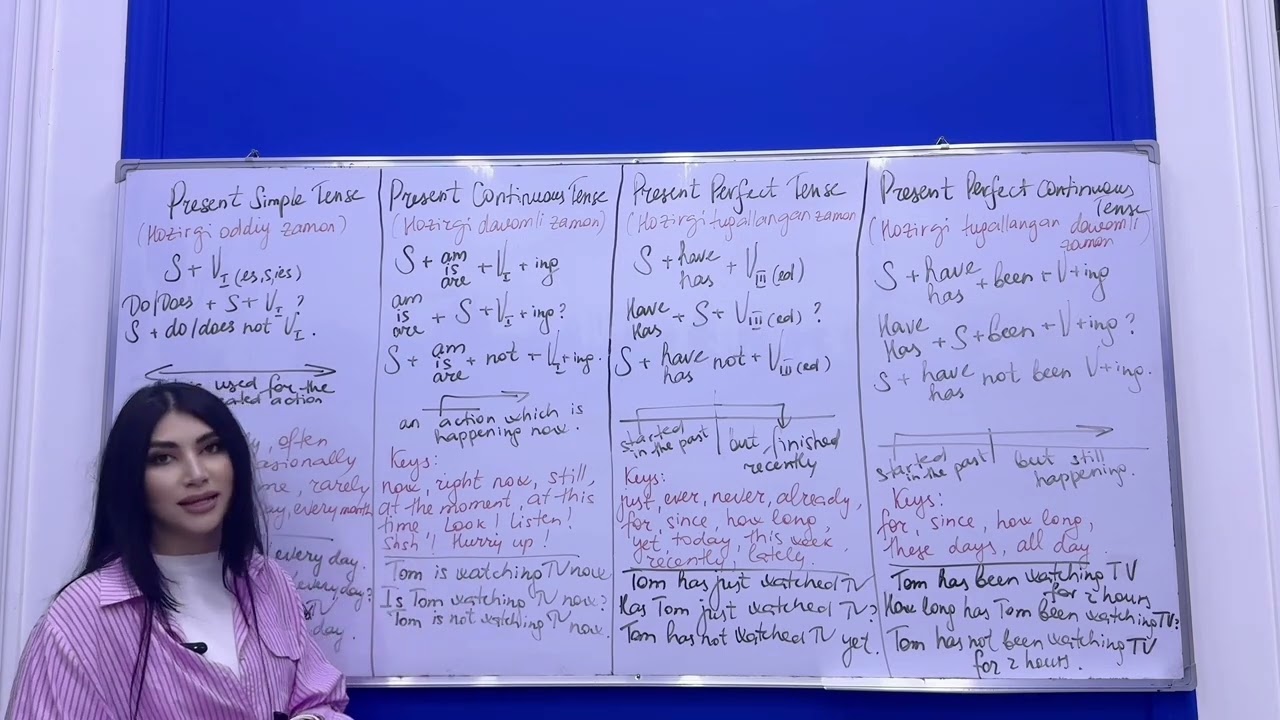 Present Simple Tense
(Hozirgi oddiy zamon)
S + V I (es, s, ies)
Do/Does + S + V I ?
S + do/does not V I .
used for the
action
often
rarely
every month
every day.
every day?
day.
Present Continuous Tense
(Hozirgi davomli zamon)
S + am is are + V I + ing
am is are + S + V I + ing?
S + am is are + not + V I + ing.
an action which is
happening now.
Keys:
now, right now, still,
at the moment, at this
time, Look! Listen!
Shsh! Hurry up!
Tom is watching TV now
Is Tom watching TV now?
Tom is not watching TV now.
Present Perfect Tense
(Hozirgi tugallangan zamon
S + have has + V III (ed)
Have Has + S + V III (ed) ?
S + have has not + V III (ed)
started in the past
but finished recently
Keys:
just, ever, never, already,
for, since, how long,
yet, today, this week,
recently, lately.
Tom has just watched TV
Has Tom just watched TV?
Tom has not watched TV yet.
Present Perfect Continuous
Tense
(Hozirgi tugallangan davomli
zamon)
S + have has + been + V + ing
Have Has + S + been + V + ing?
S + have has not been V + ing.
started in the past
but still happening.
Keys:
for, since, how long,
these days, all day.
Tom has been watching TV
for 2 hours
How long has Tom been watching TV?
Tom has not been watching TV
for 2 hours.